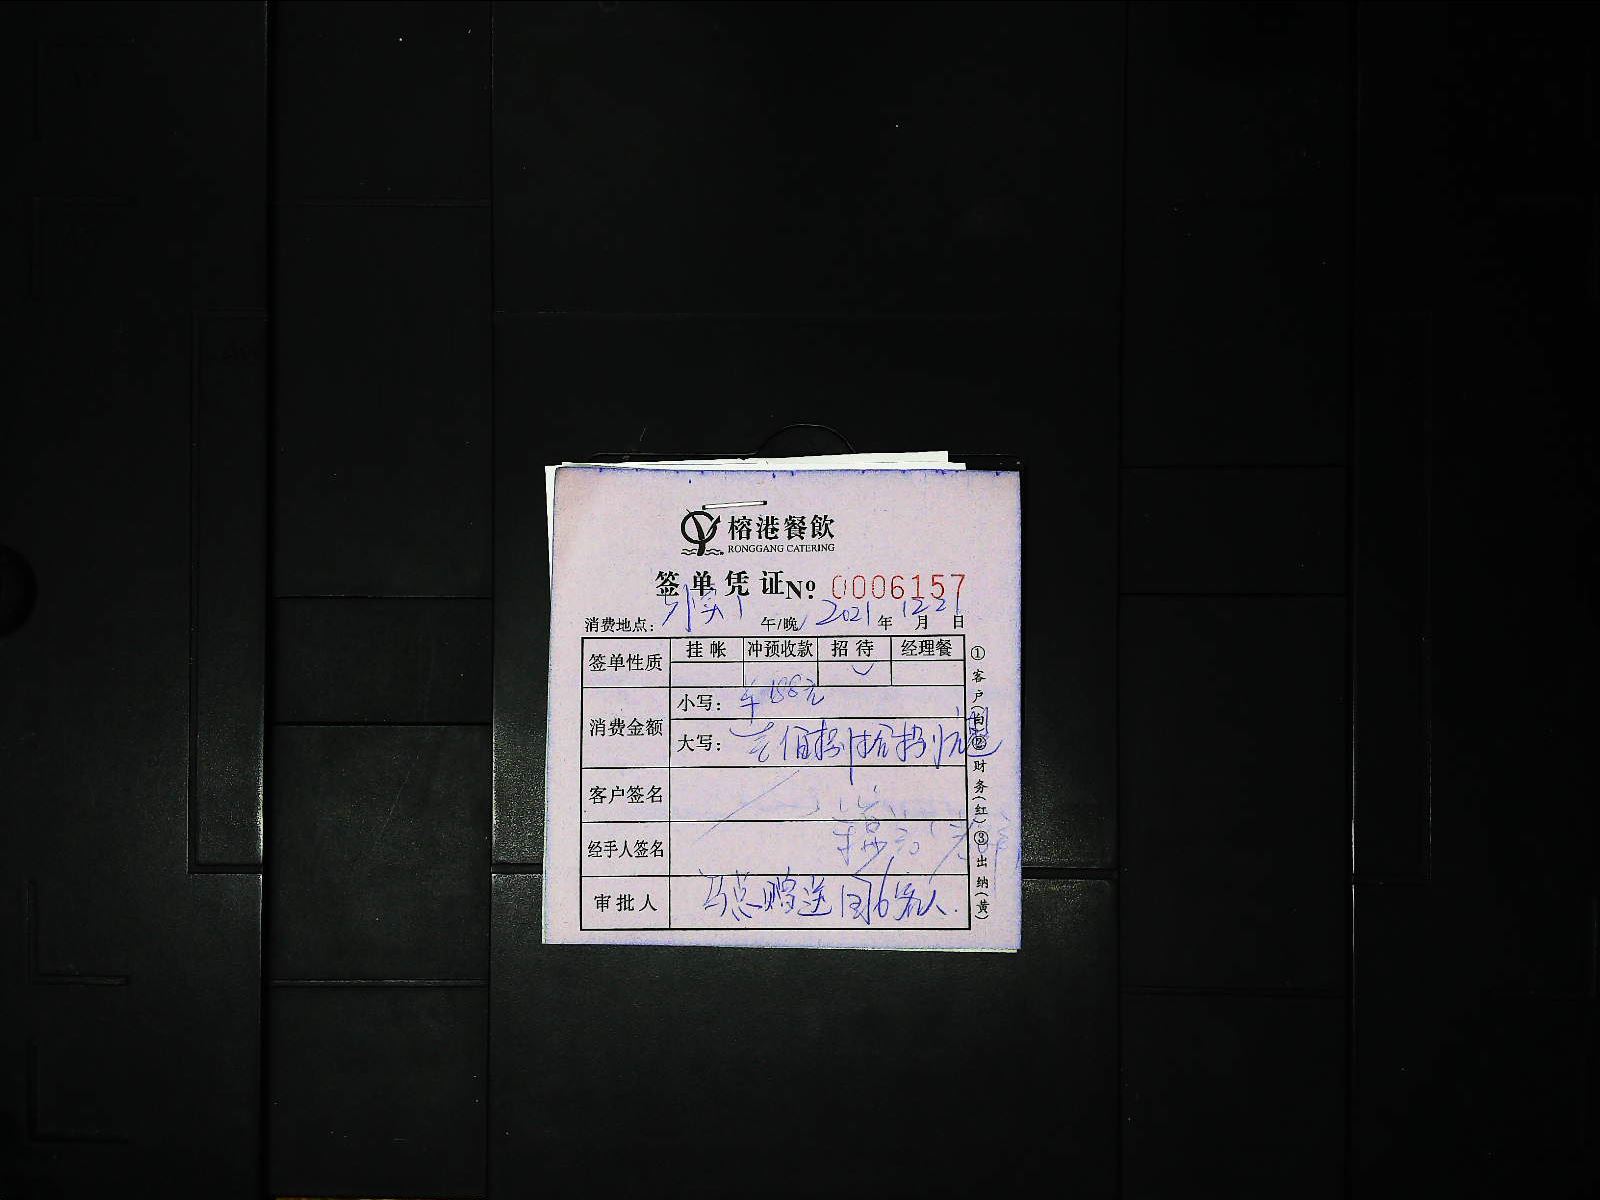 榕港餐飲
RONGGANG CATERING
签单凭证 Nº 0006157
消费地点： 午/晚 2021年12月21日
签单性质 挂帐 冲预收款 招待 经理餐
消费金额 小写： 188元
大写： 壹佰捌拾捌元
客户签名
经手人签名
审批人 马总赠送 客人.
①客户(白)②财务(红)③出纳(黄)